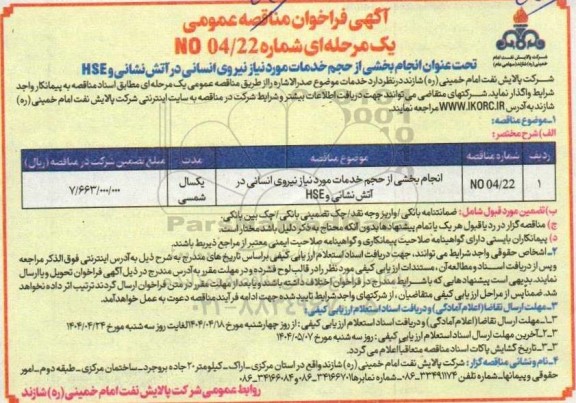 آگهی فراخوان مناقصه عمومی
یک مرحله ای شماره NO 04/22
شرکت پالایش نفت امام خمینی (ره) شازند
تحت عنوان انجام بخشی از حجم خدمات مورد نیاز نیروی انسانی در آتش نشانی و HSE
شرکت پالایش نفت امام خمینی (ره) شازند در نظر دارد خدمات موضوع صدرالاشاره را از طریق مناقصه عمومی یک مرحله ای مطابق اسناد مناقصه به پیمانکار واجد
شرایط واگذار نماید. شرکتهای متقاضی می توانند جهت دریافت اطلاعات بیشتر و شرایط شرکت در مناقصه به سایت اینترنتی شرکت پالایش نفت امام خمینی (ره)
شازند به آدرس WWW.IKORC.IR مراجعه نمایند.
۱- موضوع مناقصه:
الف) شرح مختصر:
ردیف شماره مناقصه موضوع مناقصه مدت مبلغ تضمین شرکت در مناقصه (ریال)
۱ NO 04/22 انجام بخشی از حجم خدمات مورد نیاز نیروی انسانی در آتش نشانی و HSE یکسال شمسی ۷/۶۶۳/۰۰۰/۰۰۰
ب) تضمین مورد قبول شامل: ضمانتنامه بانکی / واریز وجه نقد / چک تضمینی بانکی / چک بین بانکی.
ج) مناقصه گزار در رد یا قبول هر یک یا تمام پیشنهادها بدون آنکه محتاج به ذکر دلیل باشد مختار است.
د) پیمانکاران بایستی دارای گواهینامه صلاحیت پیمانکاری و گواهینامه صلاحیت ایمنی معتبر از مراجع ذیربط باشند.
۲- اشخاص حقوقی واجد شرایط می توانند، جهت دریافت اسناد استعلام ارزیابی کیفی براساس تاریخ های مندرج به شرح ذیل به آدرس اینترنتی فوق الذکر مراجعه
و پس از دریافت اسناد و مطالعه آن، مستندات ارزیابی کیفی مورد نظر را در قالب لوح فشرده و در مهلت مقرر به آدرس مندرج در ذیل آگهی فراخوان تحویل و یا ارسال
نمایند. بدیهی است پیشنهادهایی که با شرایط مندرج در فراخوان اختلاف داشته باشند و یا بعد از مهلت مقرر در متن فراخوان ارسال گردند ترتیب اثر داده نخواهد
شد. ضمنا پس از مراحل ارزیابی کیفی متقاضیان، از شرکتهای واجد شرایط تایید شده جهت ادامه فرآیند مناقصه دعوت به عمل خواهد آمد.
۳- مهلت ارسال تقاضا (اعلام آمادگی) و دریافت اسناد استعلام ارزیابی کیفی:
۱-۳- مهلت ارسال تقاضا (اعلام آمادگی) و دریافت اسناد استعلام ارزیابی کیفی: از روز چهارشنبه مورخ ۱۴۰۴/۰۴/۱۸ لغایت روز سه شنبه مورخ ۱۴۰۴/۰۴/۲۴
۲-۳- آخرین مهلت ارسال اسناد استعلام ارزیابی کیفی: روز سه شنبه مورخ ۱۴۰۴/۰۵/۰۷
۳-۳- تاریخ گشایش پاکات اسناد مناقصه متعاقبا اعلام می گردد.
۴- نام و نشانی مناقصه گزار: شرکت پالایش نفت امام خمینی (ره) شازند واقع در استان مرکزی - اراک - کیلومتر ۲۰ جاده بروجرد - ساختمان مرکزی - طبقه دوم - امور
حقوقی و پیمانها - شماره تلفن ۳۳۴۹۱۱۷۴-۰۸۶ شماره نمابرها ۳۴۱۶۶۷۰۱-۰۸۶ و ۳۴۱۶۶۰۸۴-۰۸۶
روابط عمومی شرکت پالایش نفت امام خمینی (ره) شازند